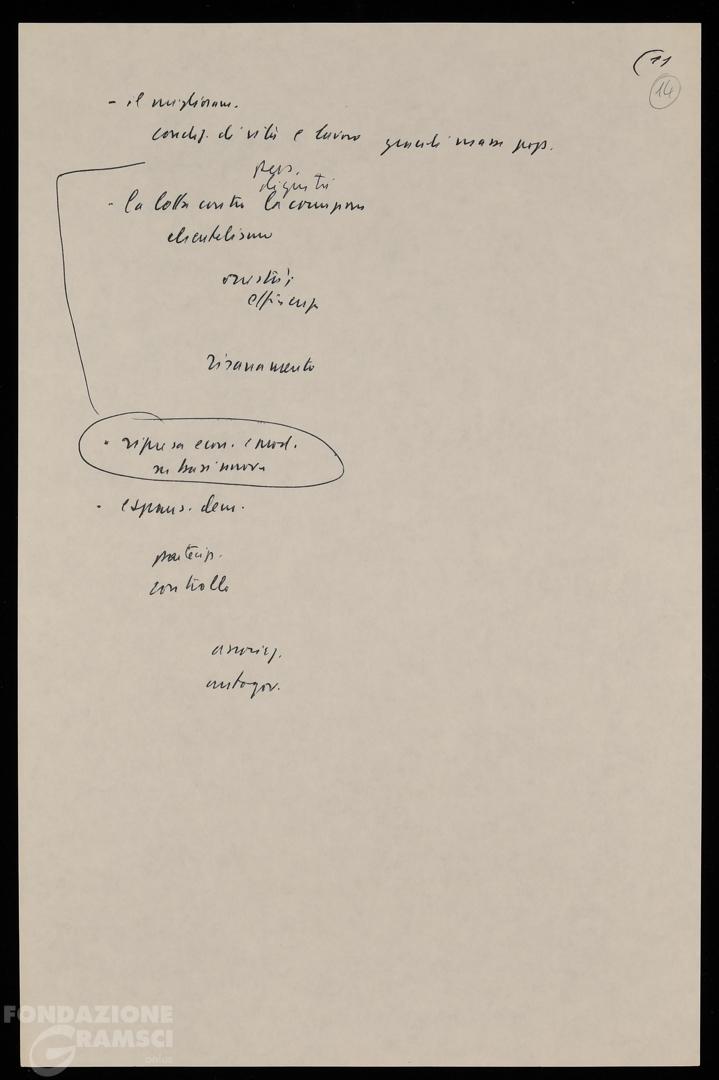 (11
14
- il miglioram.
condiz. di vita e lavoro grandi masse pop.
pers.
dignità
- la lotta contro la corruzione
clientelismo
onestà
efficienza
risanamento
- ripresa econ. e mod.
su basi nuove
- espans. dem.
partecip.
controllo
associaz.
autogov.
FONDAZIONE
GRAMSCI
onlus